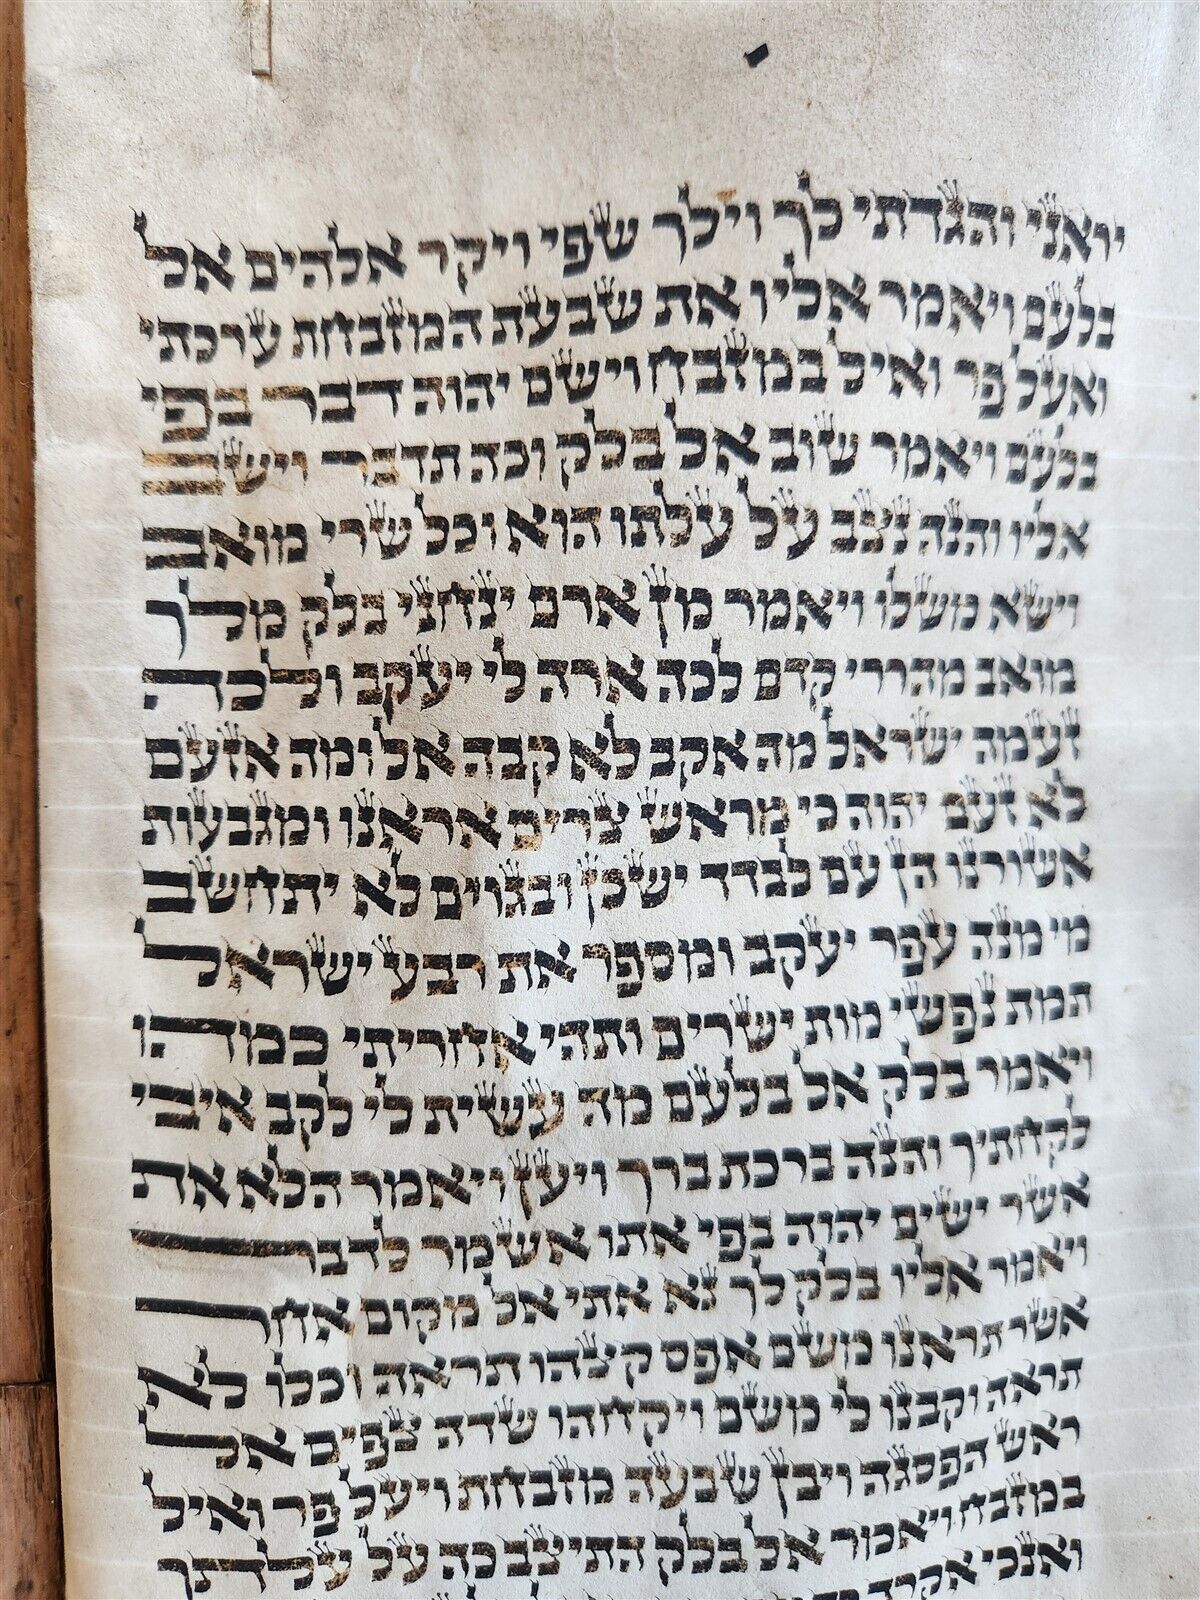 יראני והגדתי לך וילך שפי ויקר אלהים אל
בלעם ויאמר אליו את שבעת המזבחת ערכתי
ואעל פר ואיל במזבח וישם יהוה דבר בפי
בלעם ויאמר שוב אל בלק וכה תדבר וישב
אליו והנה נצב על עלתו הוא וכל שרי מואב
וישא משלו ויאמר מן ארם ינחני בלק מלך
מואב מהררי קדם לכה ארה לי יעקב ולכה
זעמה ישראל מה אקב לא קבה אל ומה אזעם
לא זעם יהוה כי מראש צרים אראנו ומגבעות
אשורנו הן עם לבדד ישכן ובגוים לא יתחשב
מי מנה עפר יעקב ומספר את רבע ישראל
תמת נפשי מות ישרים ותהי אחריתי כמהו
ויאמר בלק אל בלעם מה עשית לי לקב איבי
לקחתיך והנה ברכת ברך ויען ויאמר הלא את
אשר ישים יהוה בפי אתו אשמר לדבר
ויאמר אליו בלק לך נא אתי אל מקום אחר
אשר תראנו משם אפס קצהו תראה וכלו לא
תראה וקבנו לי משם ויקחהו שדה צפים אל
ראש הפסגה ויבן שבעה מזבחת ויעל פר ואיל
במזבח ויאמר אל בלק התיצב כה על עלתך
ואנכי אקרה